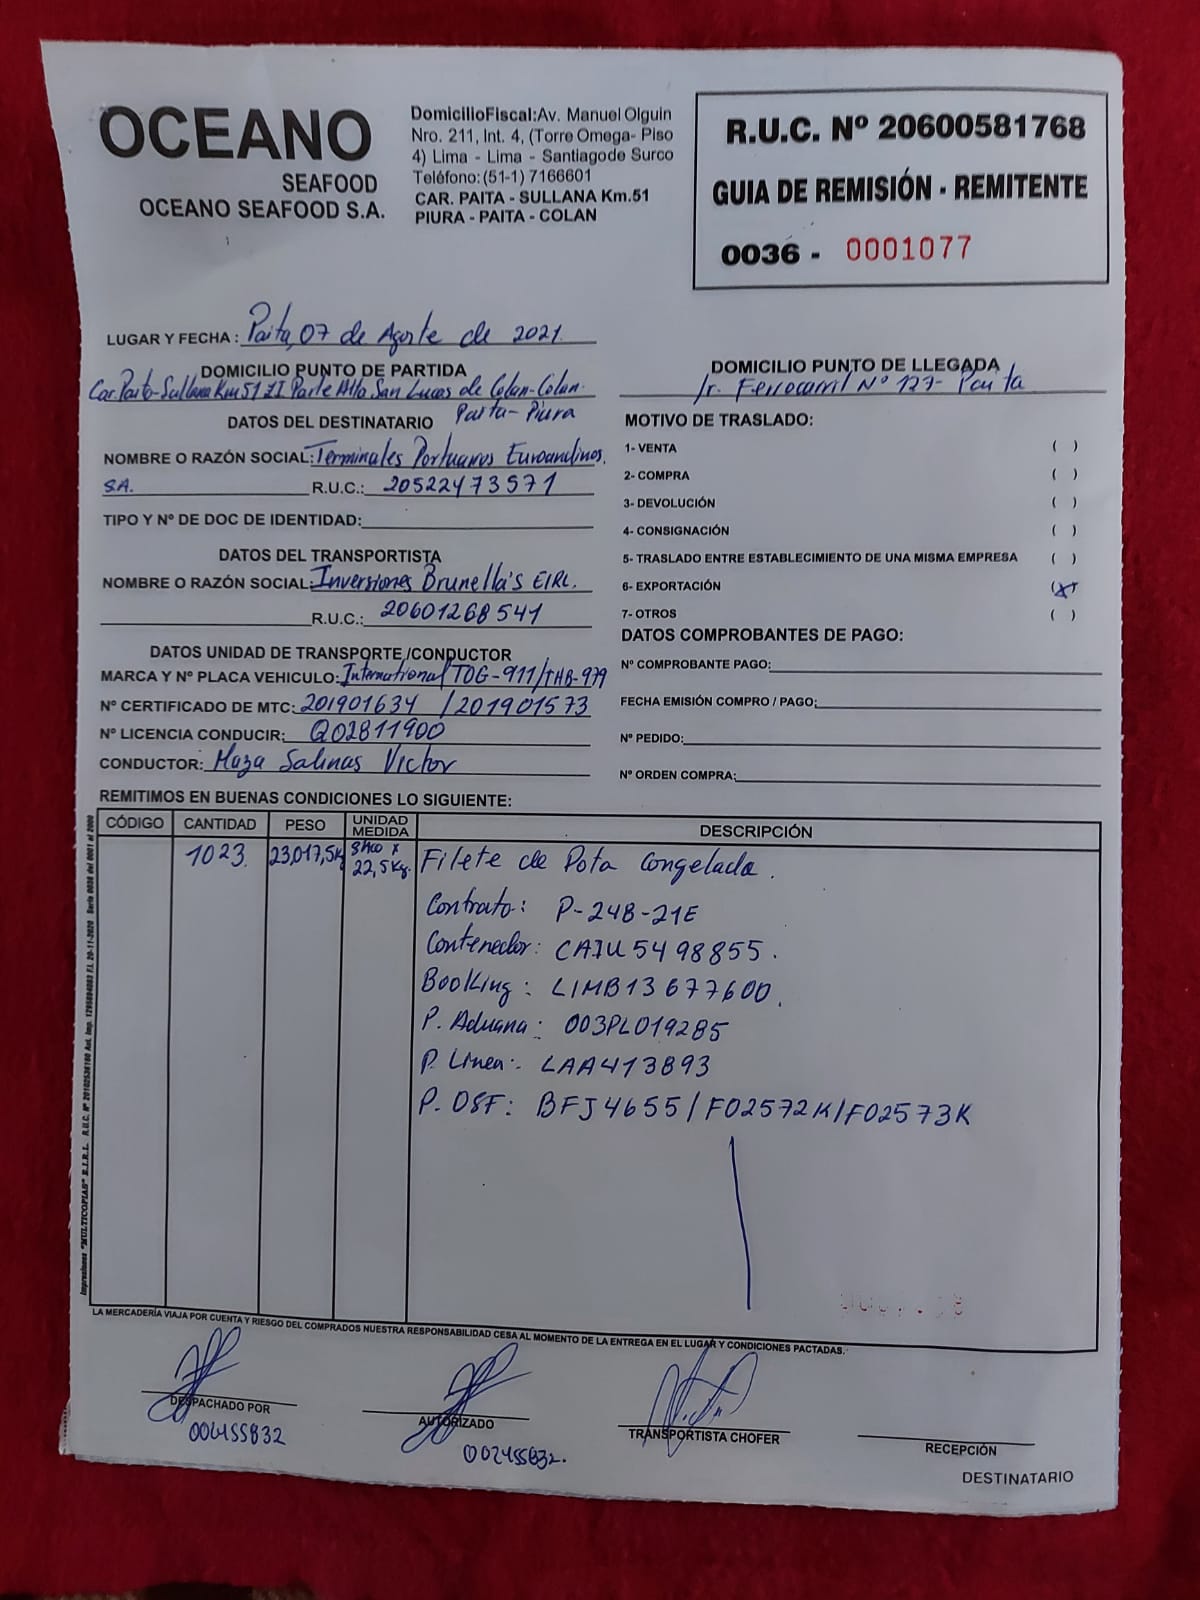 OCEANO
SEAFOOD
OCEANO SEAFOOD S.A.
DomicilioFiscal:Av. Manuel Olguin
Nro. 211, Int. 4, (Torre Omega- Piso
4) Lima - Lima - Santiagode Surco
Teléfono:(51-1) 7166601
CAR. PAITA - SULLANA Km.51
PIURA - PAITA - COLAN
R.U.C. Nº 20600581768
GUIA DE REMISIÓN - REMITENTE
0036 - 0001077
LUGAR Y FECHA : Paita, 07 de Agosto de 2021.
DOMICILIO PUNTO DE PARTIDA
Car. Paita-Sullana Km 51 ZI Parte Alta San Lucas de Colan-Colan.
Paita-Piura
DOMICILIO PUNTO DE LLEGADA
Jr. Ferrocarril Nº 127- Paita
DATOS DEL DESTINATARIO
NOMBRE O RAZÓN SOCIAL: Terminales Portuarios Euroandinos.
S.A. R.U.C.: 20522473571
TIPO Y Nº DE DOC DE IDENTIDAD:
DATOS DEL TRANSPORTISTA
NOMBRE O RAZÓN SOCIAL: Inversiones Brunella's EIRL.
R.U.C.: 20601268541
DATOS UNIDAD DE TRANSPORTE /CONDUCTOR
MARCA Y Nº PLACA VEHICULO: International TOG-911/THB-979
Nº CERTIFICADO DE MTC: 201901634 / 201901573
Nº LICENCIA CONDUCIR: Q02811900
CONDUCTOR: Maza Salinas Victor
MOTIVO DE TRASLADO:
1- VENTA ( )
2- COMPRA ( )
3- DEVOLUCIÓN ( )
4- CONSIGNACIÓN ( )
5- TRASLADO ENTRE ESTABLECIMIENTO DE UNA MISMA EMPRESA ( )
6- EXPORTACIÓN (X)
7- OTROS ( )
DATOS COMPROBANTES DE PAGO:
Nº COMPROBANTE PAGO:
FECHA EMISIÓN COMPRO / PAGO:
Nº PEDIDO:
Nº ORDEN COMPRA:
REMITIMOS EN BUENAS CONDICIONES LO SIGUIENTE:
CÓDIGO CANTIDAD PESO UNIDAD MEDIDA DESCRIPCIÓN
1023 23,017,5Kg Saco x 22,5Kg. Filete de Pota Congelada.
Contrato: P-24B-21E
Contenedor: CAIU5498855.
Booking: LIMB13677600.
P. Aduana: 003PL019285
P. Linea: LAA413893
P. OSF: BFJ4655/F02572K/F02573K
Impresiones "MULTICOPIAS" E.I.R.L.
LA MERCADERÍA VIAJA POR CUENTA Y RIESGO DEL COMPRADOS NUESTRA RESPONSABILIDAD CESA AL MOMENTO DE LA ENTREGA EN EL LUGAR Y CONDICIONES PACTADAS.
DESPACHADO POR
AUTORIZADO
TRANSPORTISTA CHOFER
RECEPCIÓN
DESTINATARIO